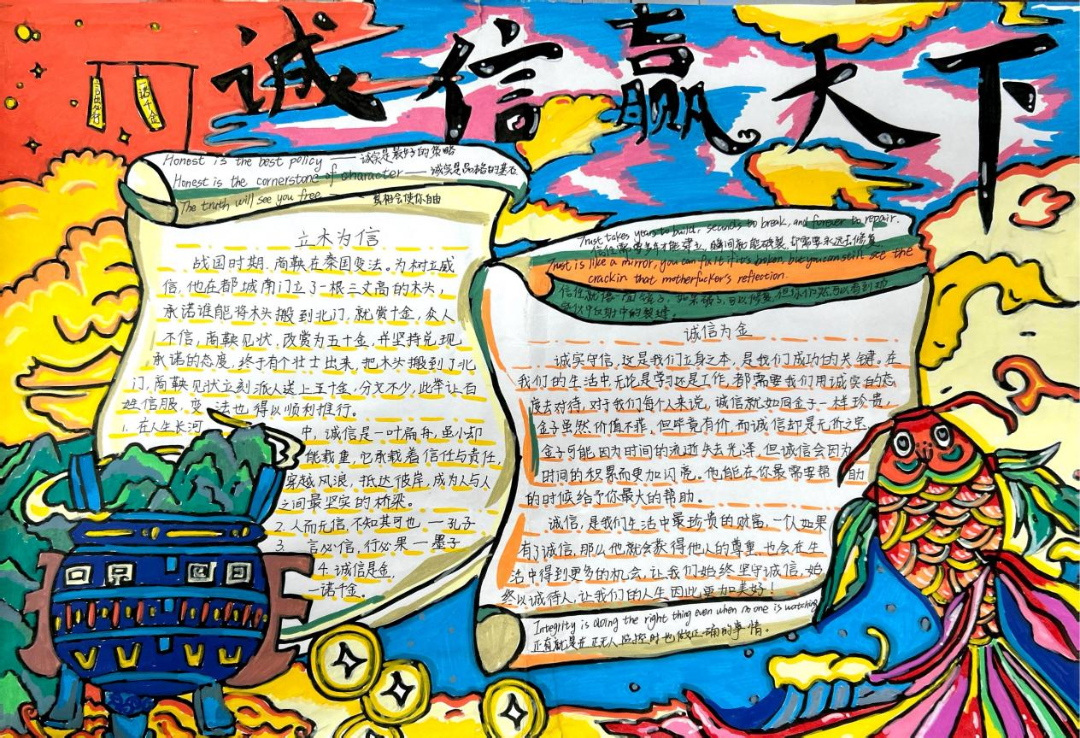 诚信赢天下
一诺千金
Honest is the best policy —— 诚实是最好的策略
Honest is the cornerstone of character —— 诚实是品格的基石
The truth will see you free —— 真相会使你自由
立木为信
战国时期,商鞅在秦国变法。为树立威
信,他在都城南门立了一根三丈高的木头,
承诺谁能将木头搬到北门,就赏十金,众人
不信,商鞅见状,改赏为五十金,并坚持兑现
承诺的态度,终于有个壮士出来,把木头搬到了北
门,商鞅见状立刻派人送上五十金,分文不少,此举让百
姓信服,变法也得以顺利推行。
1. 在人生长河
中,诚信是一叶扁舟,虽小却
能载重,它承载着信任与责任,
穿越风浪,抵达彼岸,成为人与人
之间最坚实的桥梁。
2. 人而无信,不知其可也,—孔子
3. 言必信,行必果—墨子
4. 诚信是金,
一诺千金。
Trust takes years to build, seconds to break, and forever to repair.
信任需要多年才能建立,瞬间就能破裂,却需要永远去修复
Trust is like a mirror, you can fix it if it's broken, but you can still see the
crack in that motherfucker's reflection.
信任就像一面镜子,如果碎了,可以修复,但你仍然可以看到
诚信为金
诚实守信,这是我们立身之本,是我们成功的关键。在
我们的生活中无论是学习还是工作,都需要我们用诚实的态
度去对待,对于我们每个人来说,诚信就如同金子一样珍贵,
金子虽然价值不菲,但毕竟有价,而诚信却是无价之宝,
金子可能因为时间的流逝失去光泽,但诚信会因为
时间的积累而更加闪亮。他能在你最需要帮助
的时候给予你最大的帮助。
诚信,是我们生活中最珍贵的财富,一个人如果
有了诚信,那么他就会获得他人的尊重,也会在生
活中得到更多的机会,让我们始终坚守诚信,始
终以诚待人,让我们的人生因此更加美好!
Integrity is doing the right thing even when no one is watching
正直就是在无人监控时也做正确的事情。